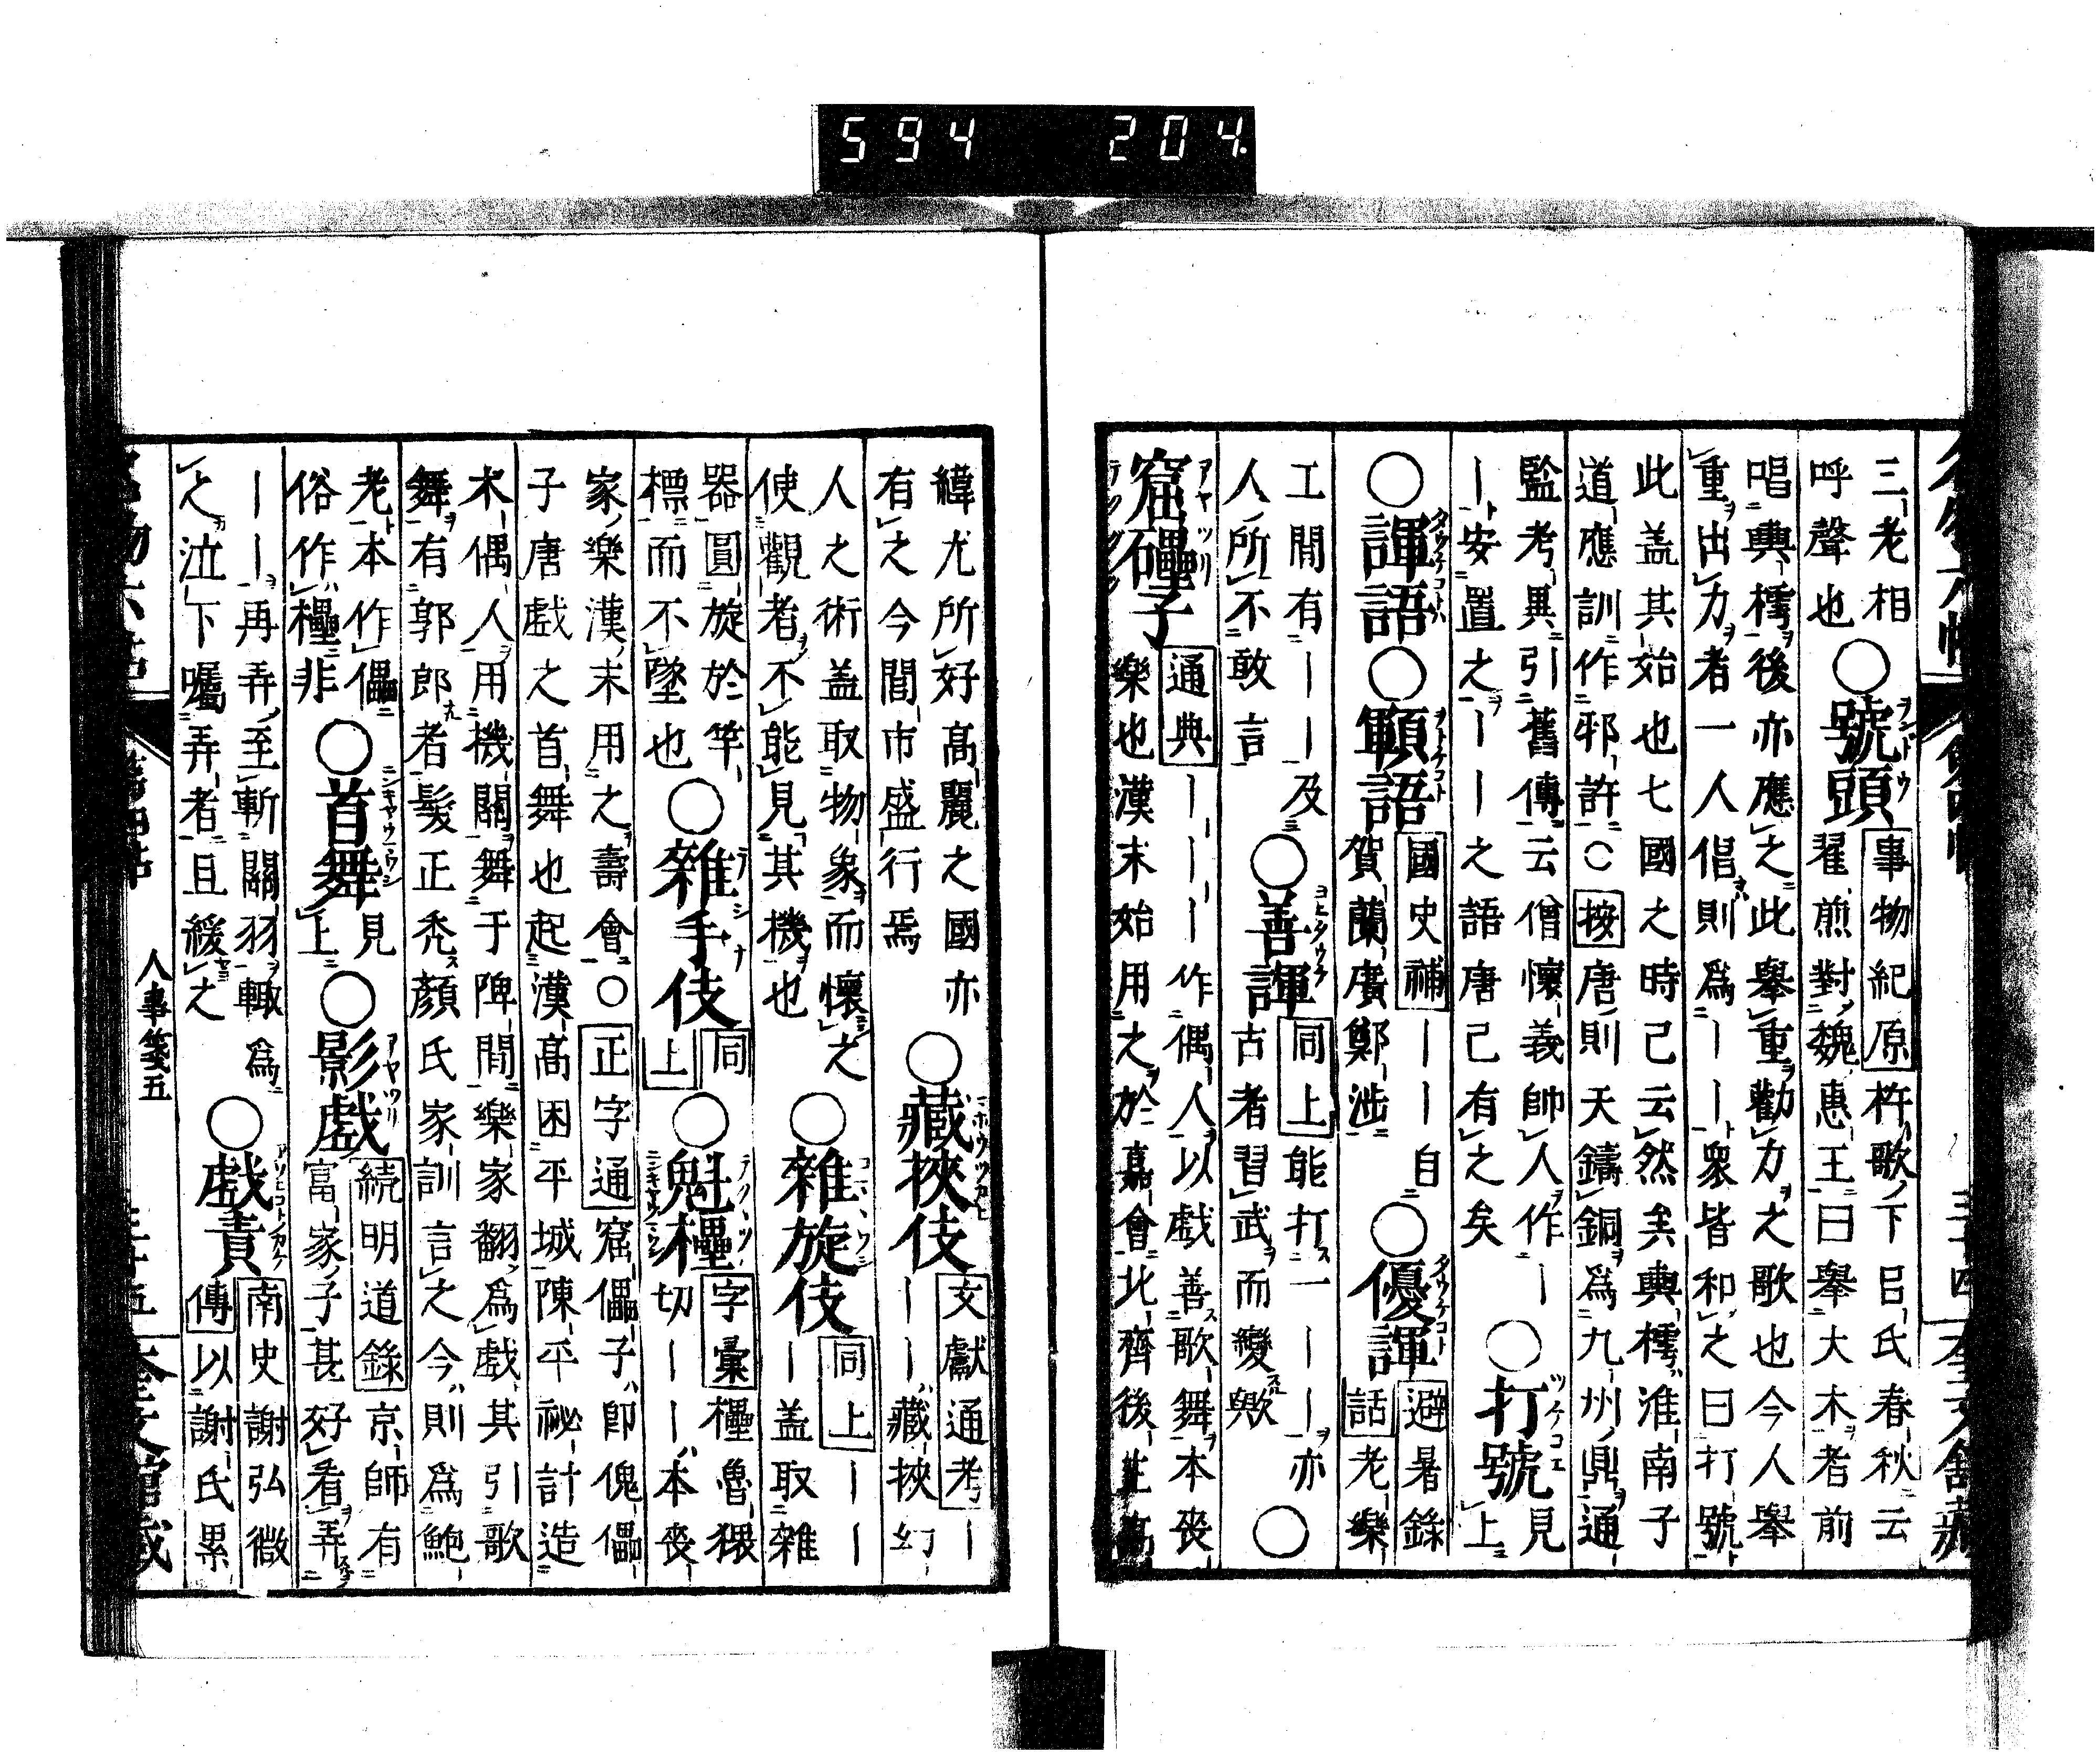 594 204.
三老相
呼聲也
○號頭
事物紀原杵歌下呂氏春秋云
翟煎對魏惠王曰舉大木者前
唱輿樗後亦應之此舉重勸力之歌也今人舉
重出力者一人倡則爲｜｜衆皆和之曰打號
此盖其始也七國之時已云然矣輿樗淮南子
道應訓作邪許○按唐則天鑄銅爲九州鼎通
監考異引舊傳云僧懷義帥人作｜
｜安置之｜｜之語唐已有之矣
○打號
見
上
○諢語○顐語
國史補｜｜自
賀蘭廣鄭涉
○優諢
避暑錄
話老樂
工間有｜｜及
人所不敢言
○善諢
同上能打一｜｜亦
古者習武而變歟
○
窟礧子
通典｜｜｜作偶人以戲善歌舞本喪
樂也漢末始用之於嘉會北齊後主高
緯尤所好高麗之國亦
有之今閭市盛行焉
○藏挾伎
文獻通考｜
｜｜藏挾幻
人之術盖取物象而懷之
使觀者不能見其機也
○雜旋伎
同上｜｜
｜盖取雜
器圓旋於竿
標而不墜也
○雜手伎
同
上
○魁櫑
字彙櫑魯猥
切｜｜本喪
家樂漢末用之壽會○正字通窟儡子卽傀儡
子唐戲之首舞也起漢高困平城陳平祕計造
木偶人用機關舞于陴間樂家翻爲戲其引歌
舞有郭郎者髮正秃顏氏家訓言之今則爲鮑
老本作儡
俗作櫑非
○首舞
見
上
○影戲
続明道錄京師有
富家子甚好看弄
｜｜再弄至斬關羽輙爲
之泣下囑弄者且緩之
○戲責
南史謝弘微
傳以謝氏累
人事箋五